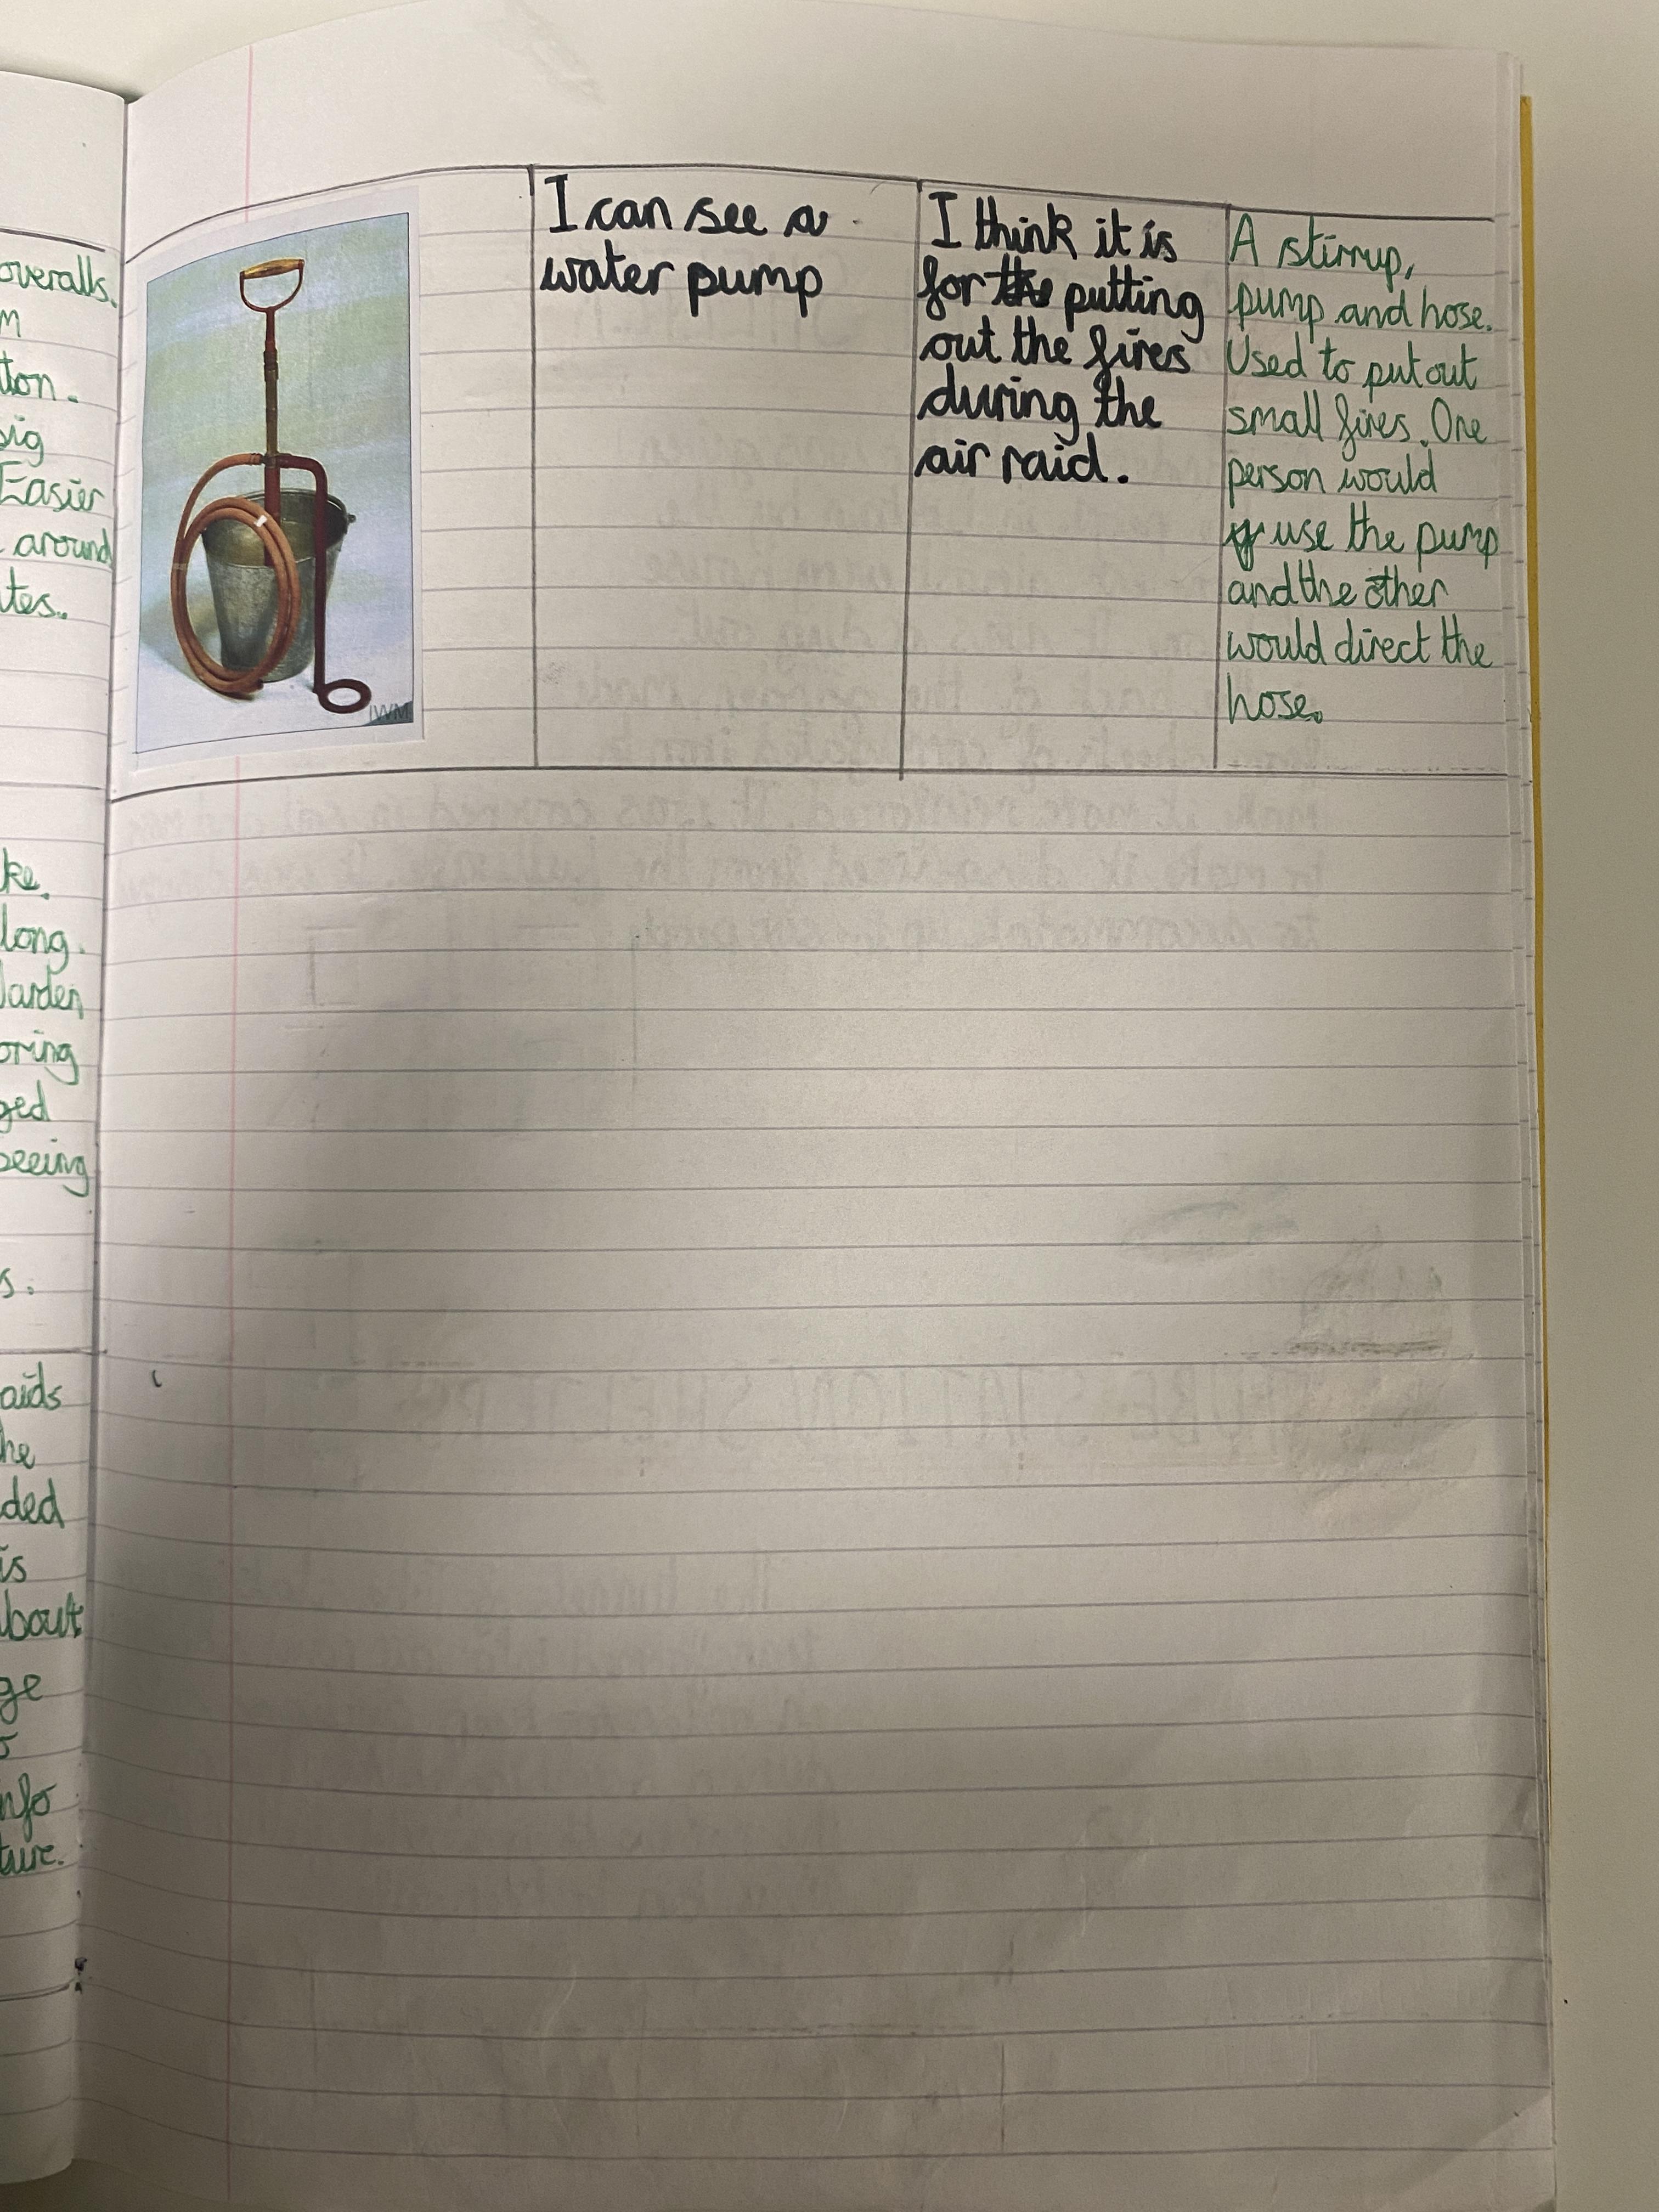 overalls.
ton.
Easier
around
tes.
ke.
long.
arden
oring
ged
seeing
s.
aids
he
ded
is
bout
ge
nfo
ture.
IWM
I can see a
water pump
I think it is
for the putting
out the fires
during the
air raid.
A stirrup,
pump and hose.
Used to put out
small fires. One
person would
use the pump
and the other
would direct the
hose.